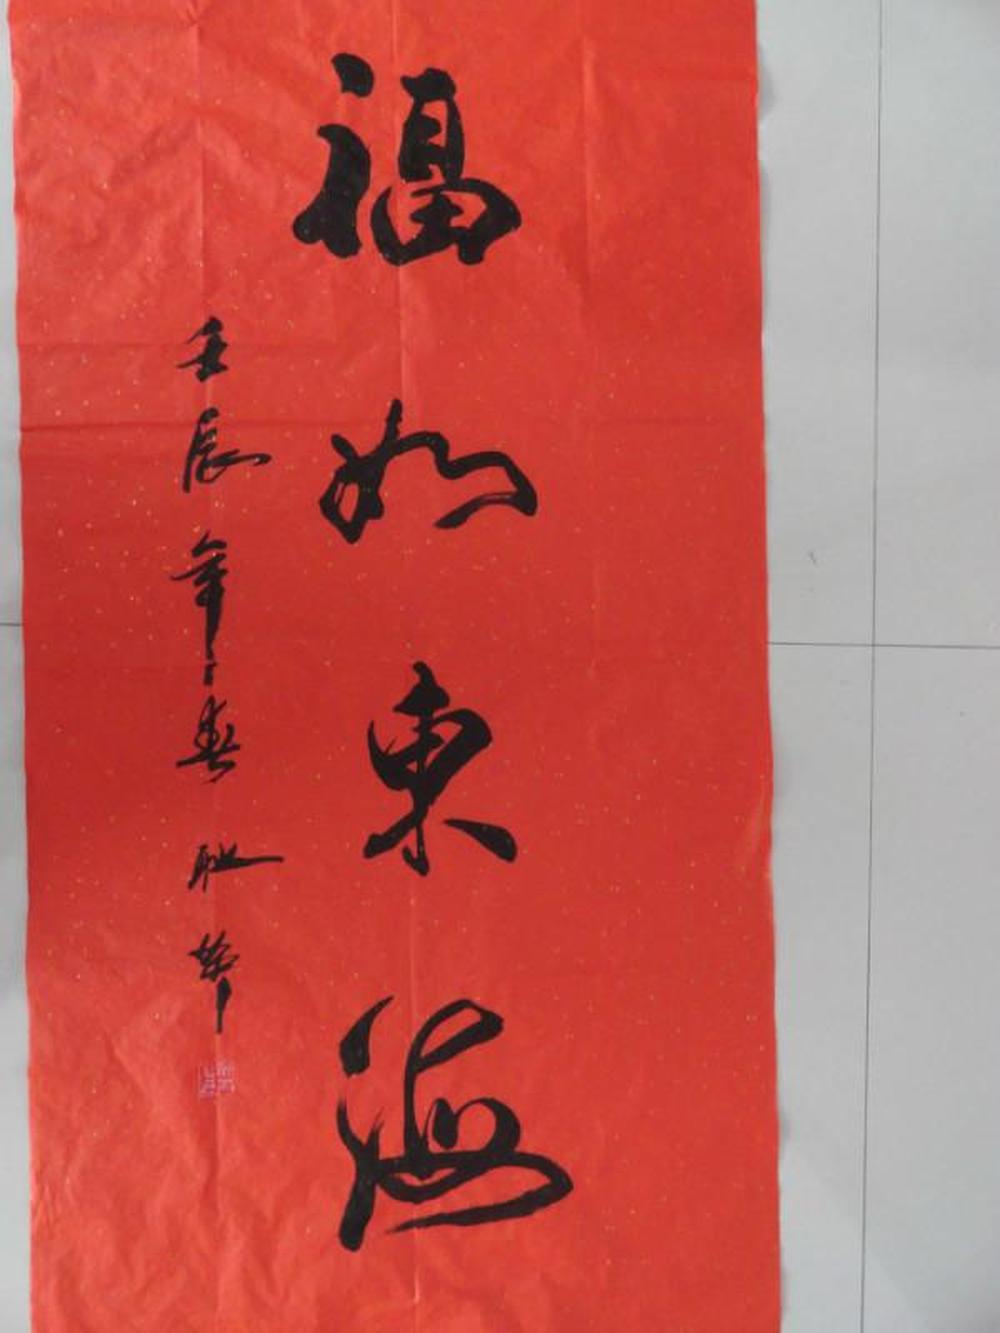 福如東海
壬辰年春